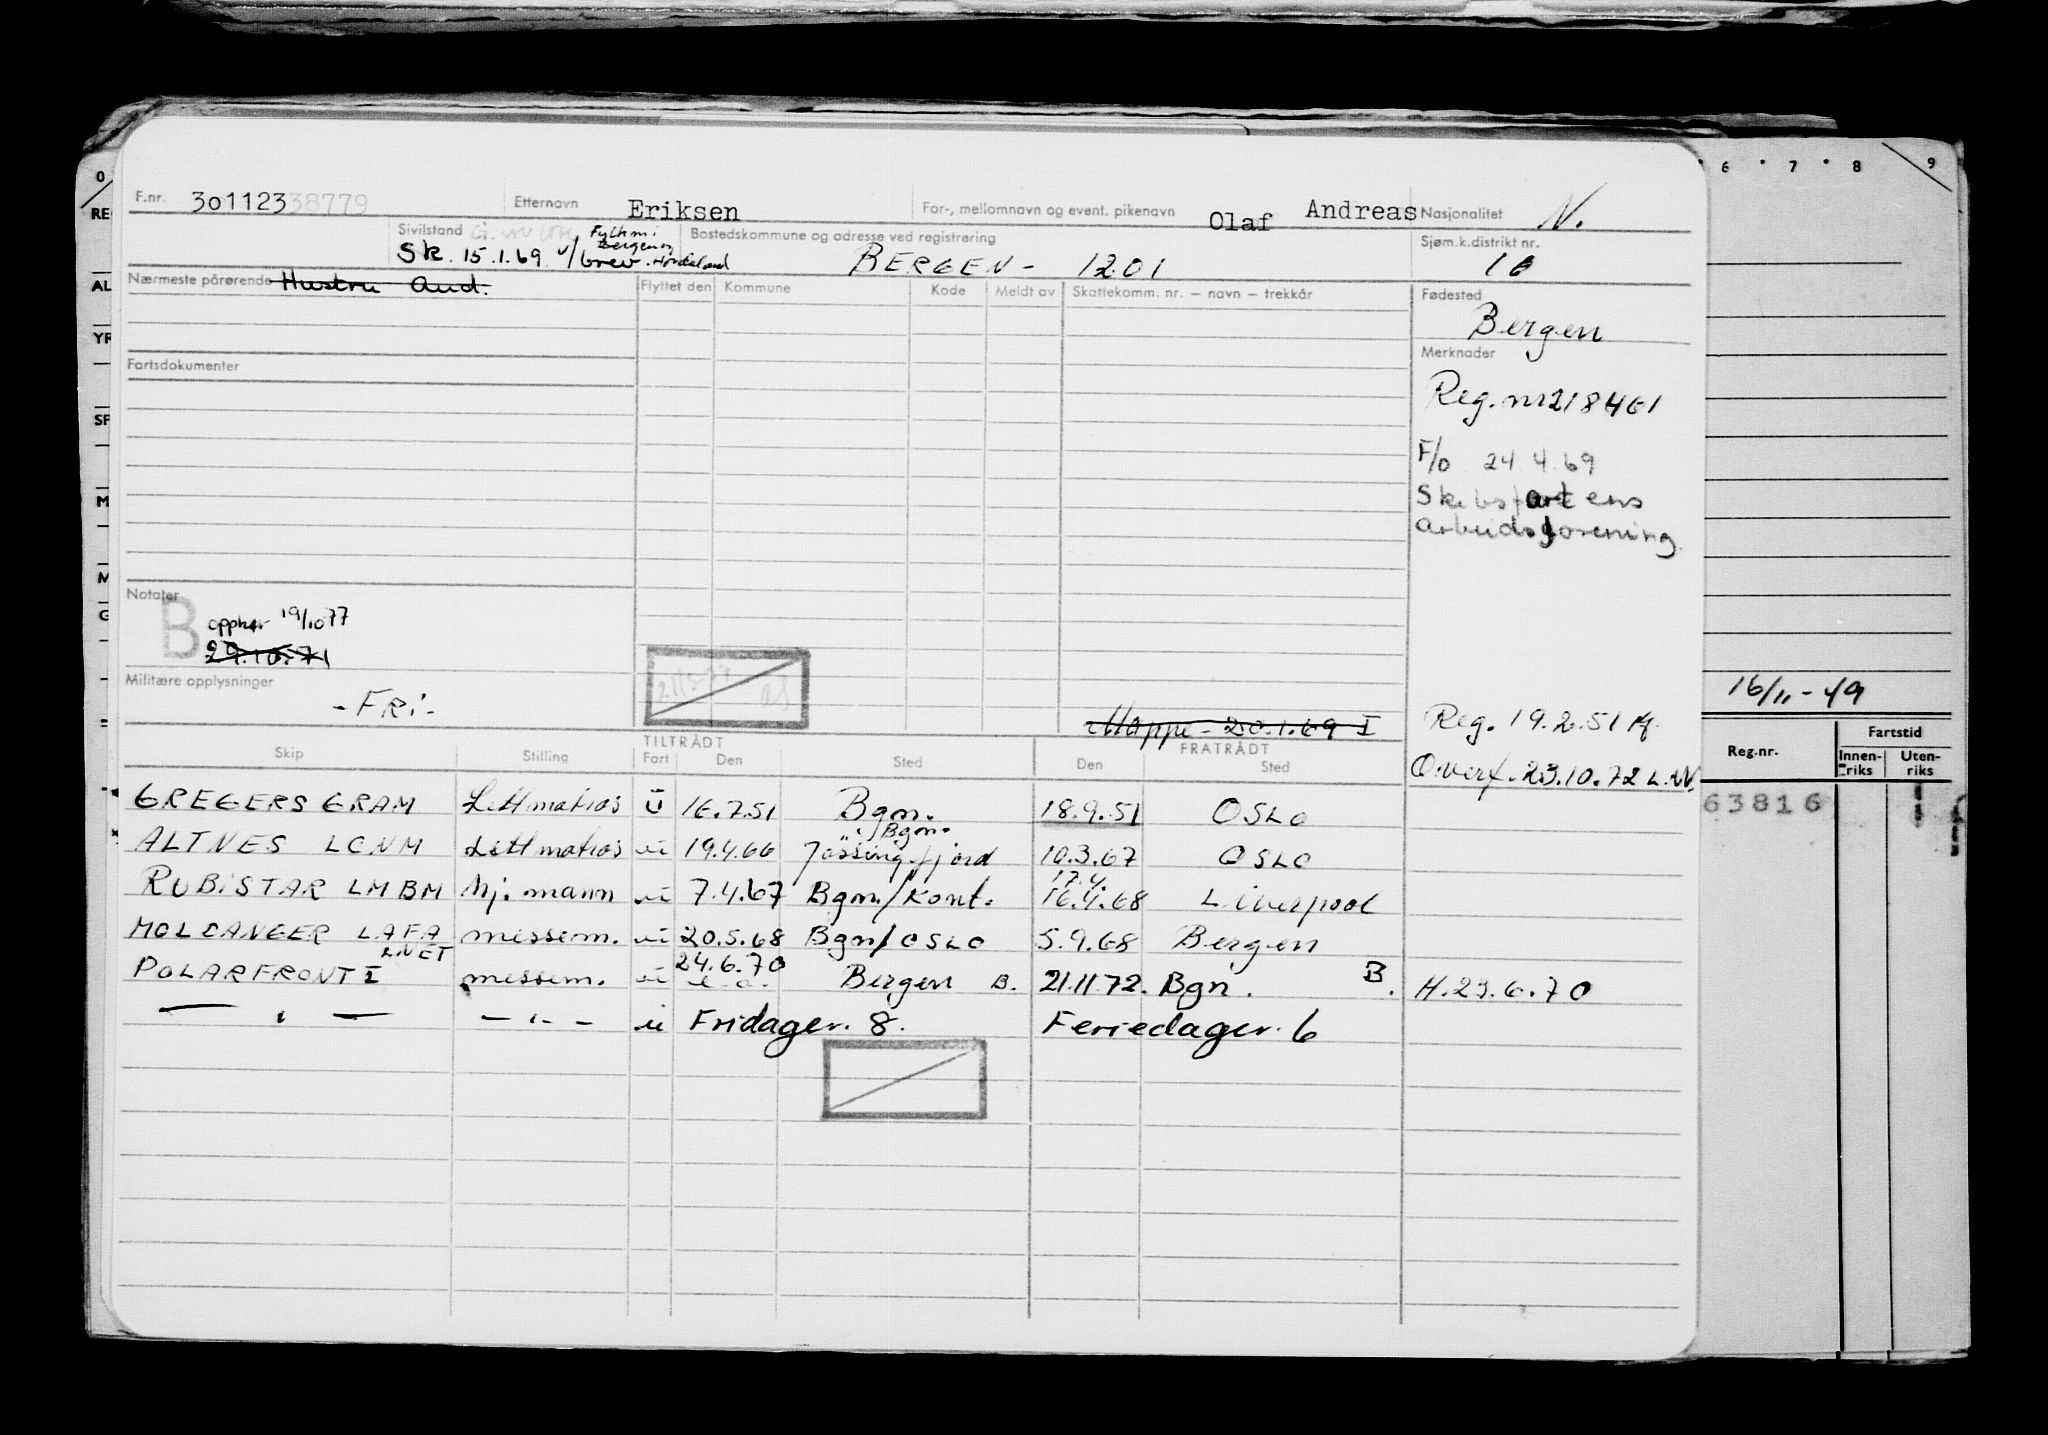 0 6 7 8 9
F.nr. 30112338779 Etternavn Eriksen For-, mellomnavn og event. pikenavn Olaf Andreas Nasjonalitet N.
Sivilstand Fylkm i Bergen og Hordaland
Sk. 15.1.69 v/ brev. Bostedskommune og adresse ved registrering BERGEN - 1201 Sjøm.k.distrikt nr. 16
Nærmeste pårørende Hustru Aud. Flyttet den Kommune Kode Meldt av Skattekomm. nr. – navn – trekkår Fødested
Bergen
Fartsdokumenter Merknader
Reg. nr 218461
F/o 24 4.69
Skibsfartens
arbeidsforening
Notater
B opphør 19/10 77
29.10.71
Militære opplysninger
- FRi -
16/11 - 49
Mappe - 20.1.69 I Reg. 19.2.51
Skip Stilling TILTRÅDT FRATRÅDT
Fart Den Sted Den Sted Overf. 23.10.72 L.W.
Reg.nr. Fartstid
Innen-riks Uten-riks
GREGERS GRAM Lettmatros u 16.7.51 Bgn. 18.9.51 OSLO 63816
ALTNES LCNM Lettmatros ui 19.4.66 Jøssingfjord / Bgn. 10.3.67 OSLO
RUBISTAR LMBM hj. mann ui 7.4.67 Bgn./Kont. 17.4. 16.4.68 Liverpool
MOLDANGER LAFA messem. ui 20.5.68 Bgn/OSLO 5.9.68 Bergen
POLARFRONT I LNET messem. ui 24.6.70 Bergen B. 21.11.72. Bgn. B. H.23.6.70
— " — - " - ui Fridager. 8. Feriedager. 6